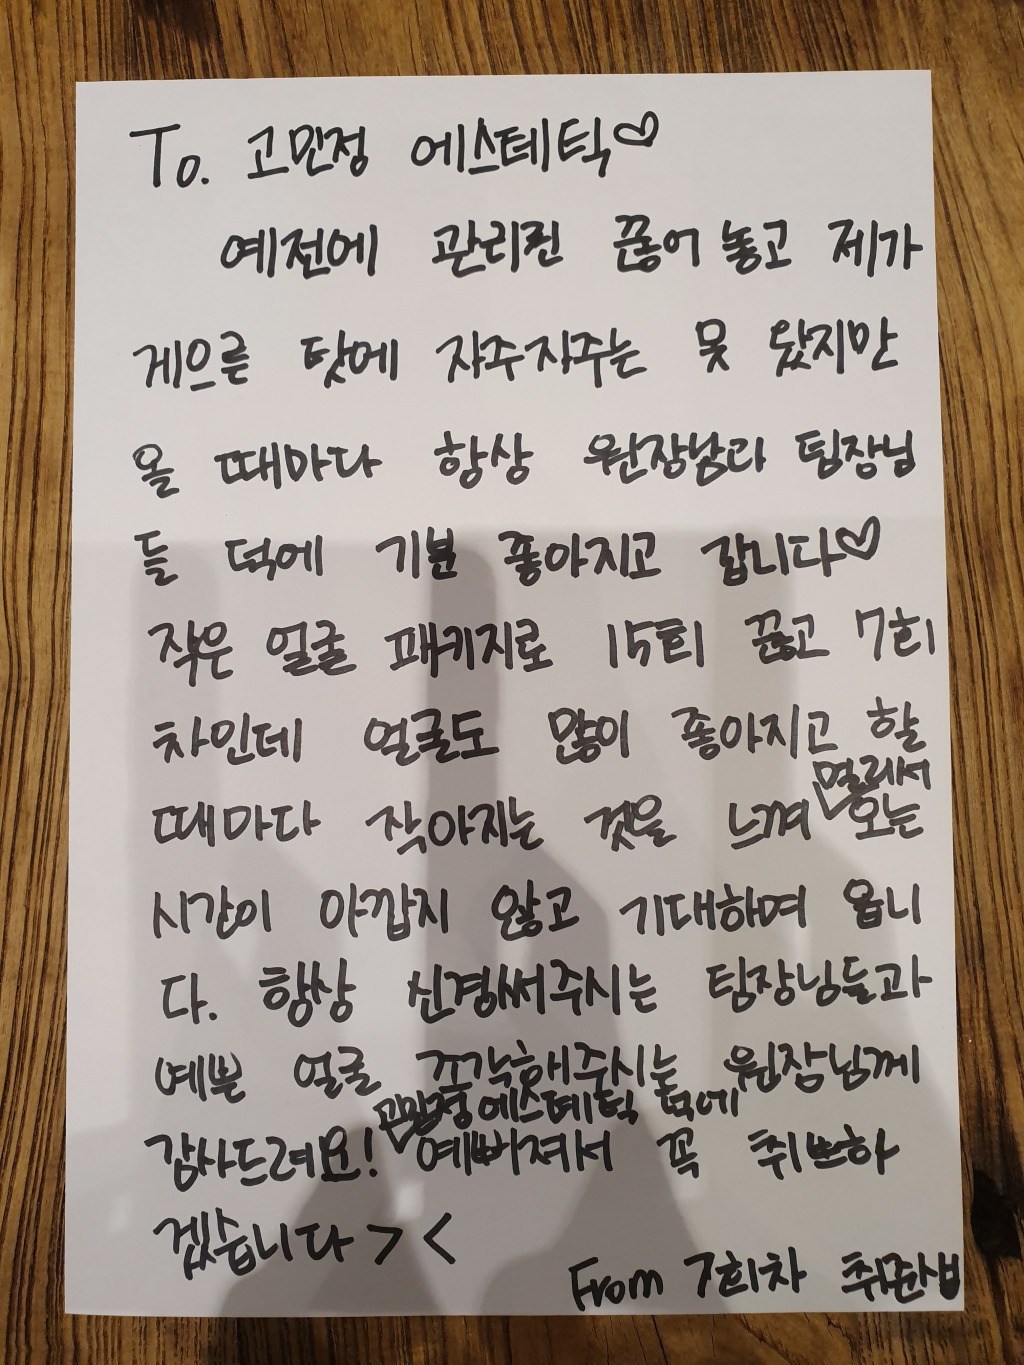 To. 고민정 에스테틱♡
예전에 관리권 끊어 놓고 제가
게으른 탓에 자주자주는 못 왔지만
올 때마다 항상 원장님과 팀장님
들 덕에 기분 좋아지고 갑니다♡
작은 얼굴 패키지로 15회 끊고 7회
차인데 얼굴도 많이 좋아지고 할
때마다 작아지는 것을 느껴 멀리서 오는
시간이 아깝지 않고 기대하며 옵니
다. 항상 신경써주시는 팀장님들과
예쁜 얼굴 조각해주시는 원장님께
감사드려요! 고민정 에스테틱 덕에 예뻐져서 꼭 취뽀하
겠습니다 > <
From 7회차 취준생